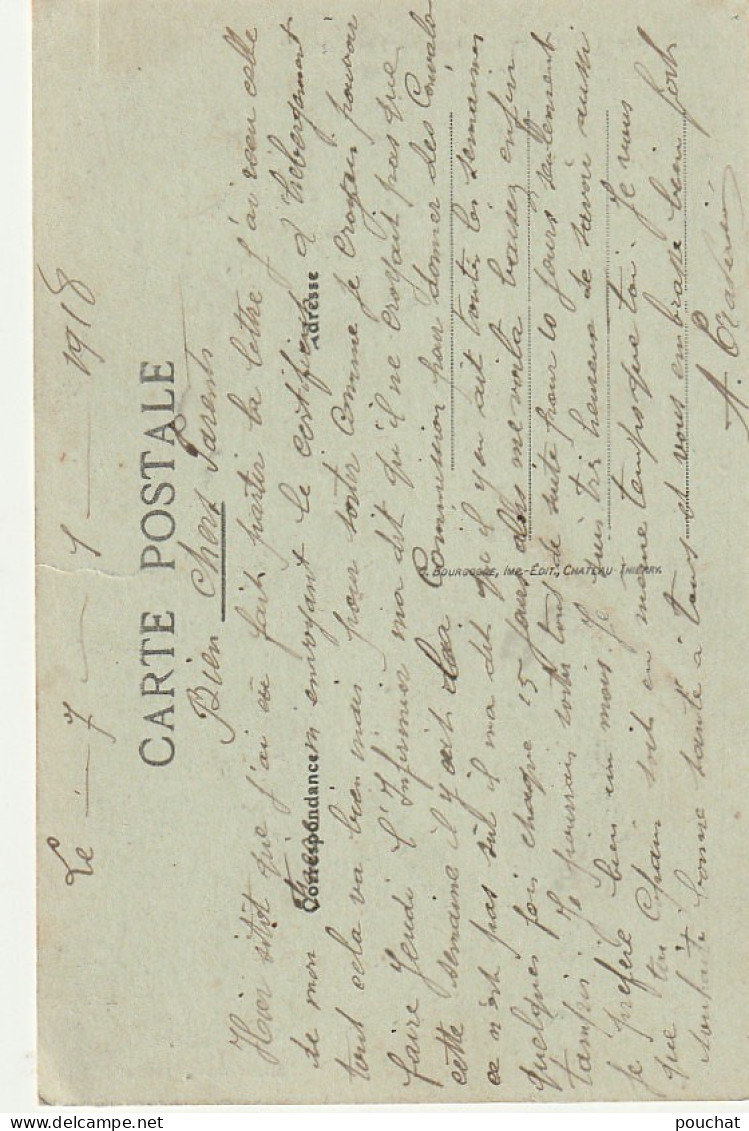 Le — 7 — 1 — 1918
CARTE POSTALE
Bien chers Parents
Hier sitôt que j'ai eu fait partir la lettre j'ai reçu celle
de mon en envoyant le certificat d'hébergement
Correspondance
Adresse
tout cela va bien mais pour sortir comme je croyais pouvoir
faire Jeudi l'Infirmier ma dit qu'il ne croyait pas que
cette semaine il y ait la Commission pour donner des Convalo
ce n'est pas sûr il ma dit qu'il y en ait toutes les semaines
quelques fois chaque 15 jours alors me voila baisez enfin
tampis je pourrais sortir tout de suite pour 10 jours seulement
je préfère bien un mois. Je suis très heureux de savoir aussi
que ton Chain soit en même temps que toi. Je vous
souhaite bonne santé à tous et vous embrasse bien fort
BOURGOGNE, IMP.-ÉDIT., CHATEAU-THIERRY.
pouchat